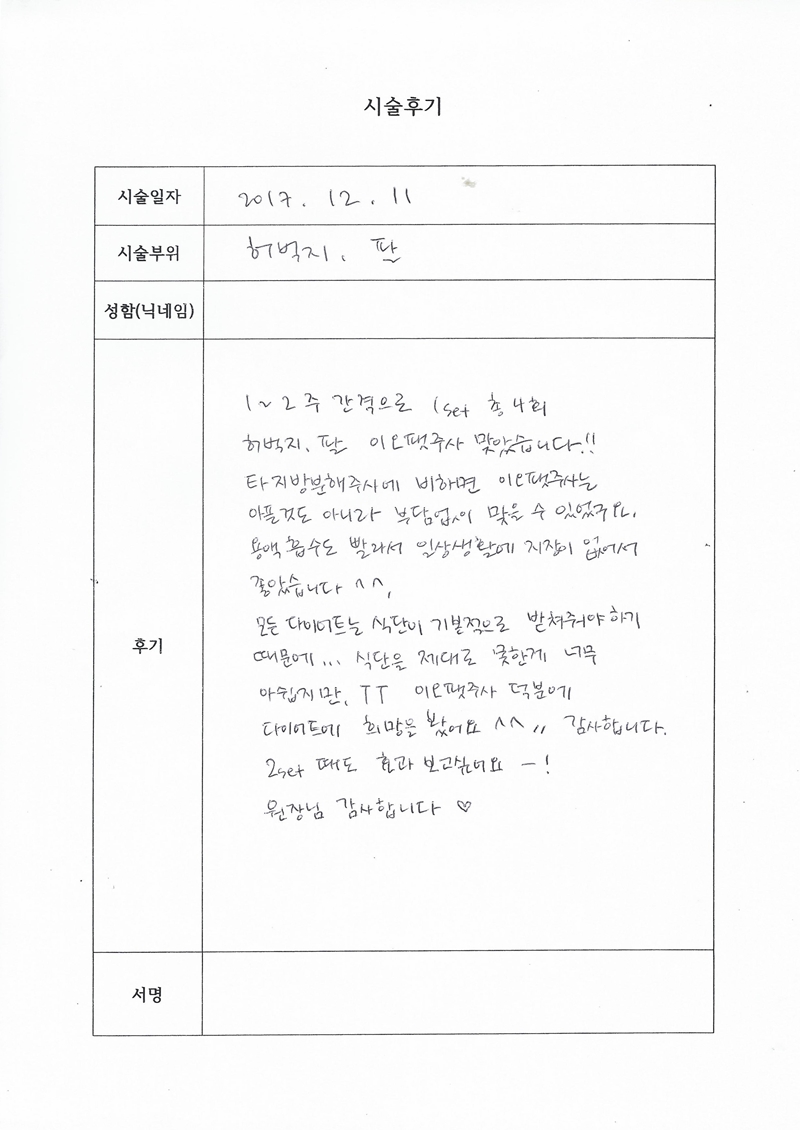 시술후기
시술일자 2017. 12. 11
시술부위 허벅지, 팔
성함(닉네임)
후기
1~2주 간격으로 1set 총 4회
허벅지, 팔 이오팻주사 맞았습니다!!
타지방분해주사에 비하면 이오팻주사는
아플것도 아니라 부담없이 맞을 수 있었구요,
용액 흡수도 빨라서 일상생활에 지장이 없어서
좋았습니다 ^^,
모든 다이어트는 식단이 기본적으로 받쳐줘야하기
때문에... 식단을 제대로 못한게 너무
아쉽지만, TT 이오팻주사 덕분에
다이어트에 희망을 봤어요 ^^,, 감사합니다.
2set 때도 효과 보고싶어요 ㅡ!
원장님 감사합니다 ♡
서명